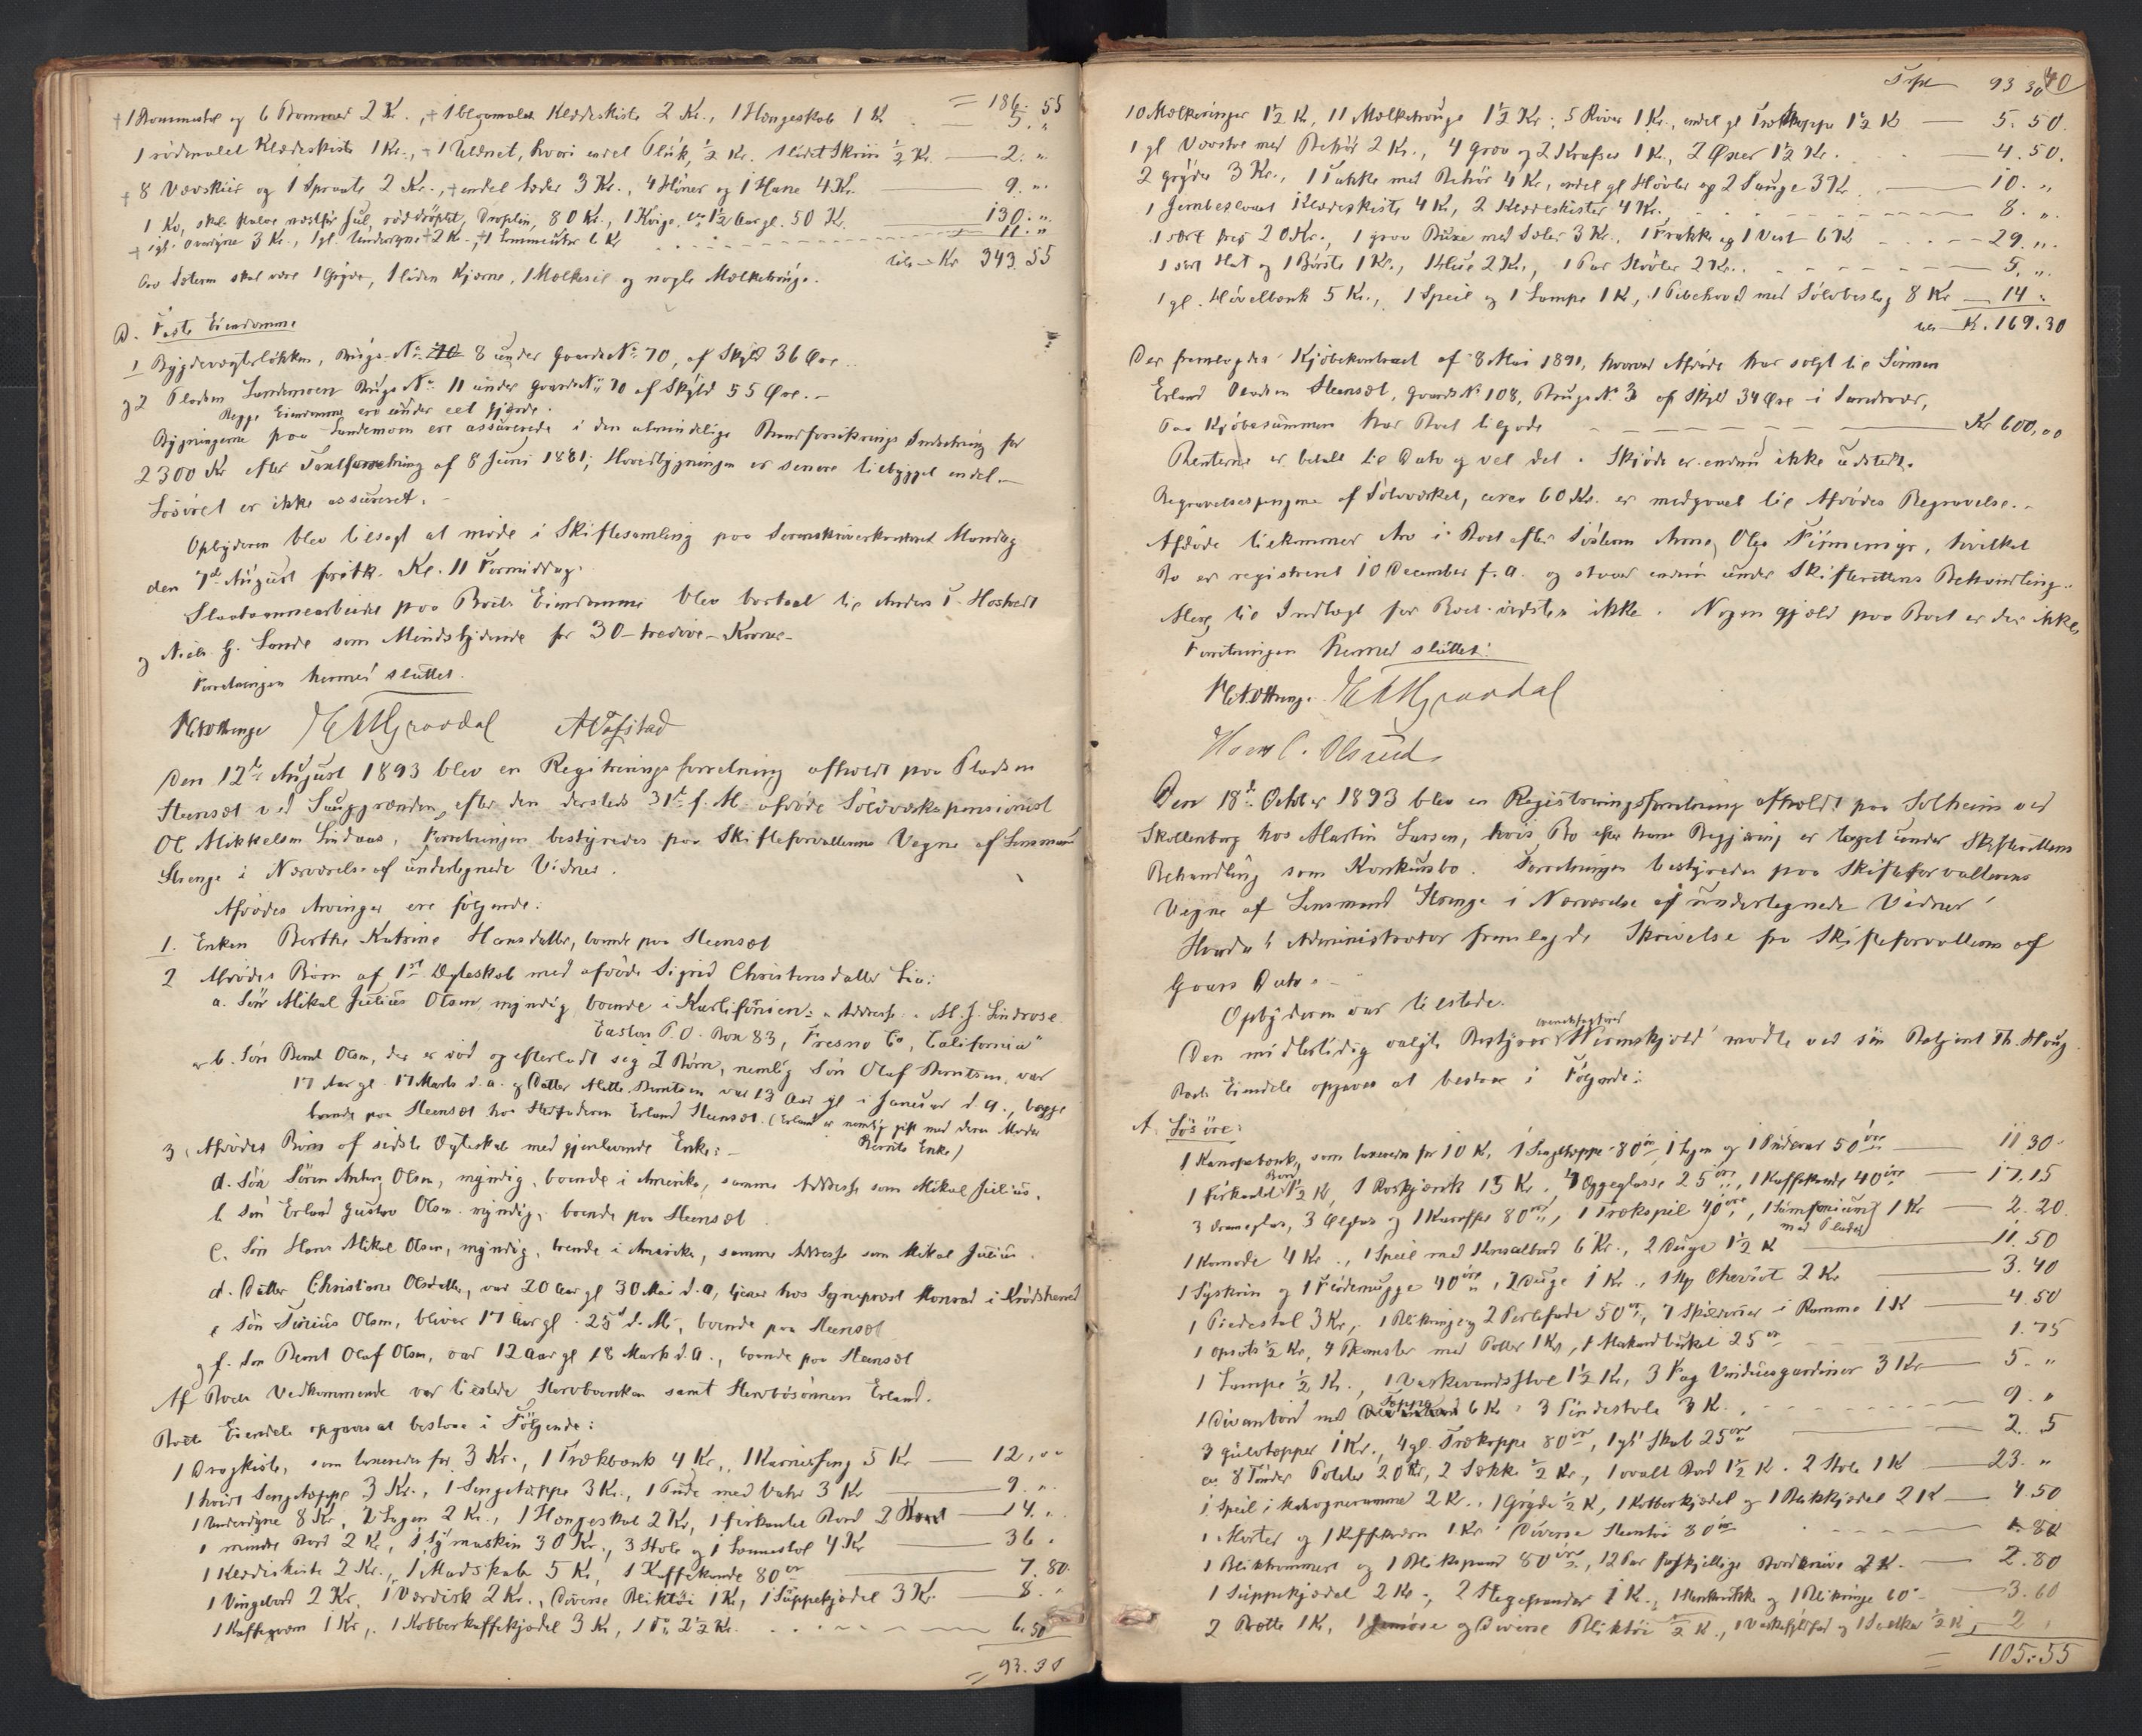 = 186. 55
+ 1 Rommestol og 6 Rammer 2 Kr., + 1 blaamalet Klædeskiste 2 Kr., 1 Hængeskab 1 Kr — 5. "
1 rödmalet Klædeskiste 1 Kr., + 1 Uldnet, hvori endel Pluk, ½ Kr. 1 lidet Skrin ½ Kr. — 2. "
+ 8 Vævskier og 1 Sprøite 2 Kr., + endel Læder 3 Kr., 4 Höner og 1 Hane 4 Kr. — 9. "
1 Ko, skal kalve næstför Jul, röddröplet, Droplin, 80 Kr., 1 Kvige, ca 1½ Aar gl. 50 Kr. — 130. "
+ 1 gl. Overdyne 3 Kr., 1 gl. Underdyne + 2 Kr., + 1 Lommeuhr 6 Kr — 11. "
tils. — Kr 343. 55
Paa Sæteren skal være 1 Gryde, 1 liden Kjærne, 1 Melkesil og nogle Melketrauge.
D. Faste Eiendomme
1 Bygdevægterløkken, Brugs-No 8 under Gaards No 70, af Skyld 36 Øre.
og 2 Pladsen Sandemoen Brugs No 11 under Gaards No 70 af Skyld 55 Øre. —
Begge Eiendomme ere under eet Gjærde.
Bygningerne paa Sandemoen ere assurerede i den almindelige Brandforsikrings Indretning for
2300 Kr efter Taxtforretning af 8 Juni 1881; Hovedbygningen er senere tilbygget endel. —
Lösöret er ikke assureret. —
Opbyderen blev tilsagt at möde i Skiftesamling paa Sorenskriverkontoret Mandag
den 7de August förstk. Kl. 11 Formiddag.
Slaataannearbeidet paa Boets Eiendomme blev bortsat til Anders T. Hostvedt
og Niels G. Sande som Mindstbydende for 30 – tredive – Kroner –
Forretningen hermed sluttet.
HEMGravdal
Den 12te August 1893 blev en Registreringsforretning afholdt paa Pladsen
Steinset ved Saggrenden, efter den dersteds 31te f. M. afdöde Sölvværkspensionist
Ol. Mikkelsen Lindaas. Forretningen bestyredes paa Skifteforvalterens Vegne af Lensmand
Strenge i Nærværelse af undertegnede Vidner.
Afdödes Arvinger ere fölgende:
1. Enken Berthe Katrine Hansdatter, boende paa Steenset
2 Afdödes Börn af 1ste Ægteskab med afdöde Sigrid Christensdatter Lia:
a. Sön Mikal Julius Olsen, myndig, boende i Kalifornien: "Addresse: M. J. Lindrose
Easton P.O. Box 83, Fresno Co, California"
og b. Sön Bernt Olsen, der er död og efterladt seg 2 Börn, nemlig Sön Olaf Berntsen, var
17 Aar gl. 17 Marts d. a. og Datter Alette Berntsen var 13 Aar gl i Januar d. a., begge
boende paa Steenset hos Stedfaderen Erland Steenset. (Erland er nemlig gift med deres Moder
Bernts Enke)
3. Afdödes Börn af sidste Ægteskab med gjenlevende Enke: —
a. Sön Sören Anton Olsen, myndig, boende i Amerika, samme Addresse som Mikal Julius.
b. Sön Erland Gustav Olsen, myndig, boende paa Steenset
c. Sön Hans Mikal Olsen, myndig, boende i Amerika, samme Addresse som Mikal Julius.
d. Datter Christiane Olsdatter, var 20 Aar gl 30 Mai d. a, tjener hos Sognepræst Konrad i Krödshered
e Sön Julius Olsen, bliver 17 Aar gl. 25de d. M., boende paa Steenset
og f. Sön Bernt Olaf Olsen, var 12 Aar gl 18 Marts d. A., boende paa Steenset
Af Boets Vedkommende var tilstede Stervboenken samt Stervbosönnen Erland.
Boets Eiendele opgaves at bestaa i Fölgende:
1 Dragkiste, som taxeredes for 3 Kr., 1 Trækbænk 4 Kr., 1 Karnisseng 5 Kr — 12, "
1 hvidt Sengetæppe 3 Kr., 1 Sengetæppe 3 Kr., 1 Pude med Vahr 3 Kr — 9. "
1 Underdyne 8 Kr, 2 Lagen 2 Kr., 1 Hængeskab 2 Kr, 1 firkantet Bord 2 — 14. "
1 mindre Bord 2 Kr, 1 Symaskin 30 Kr., 3 Stole og 1 Lænestol 4 Kr — 36 "
1 Klædeskiste 2 Kr., 1 Madskab 5 Kr, 1 Kaffekande 80 ør — 7.80
1 Vingebord 2 Kr, 1 Vardisk 2 Kr., Diverse Bliktöi 1 Kr, 1 Suppekjedel 3 Kr. — 8. "
1 Kaffegværn 1 Kr,. 1 Kobberkaffekjedel 3 Kr, 1 Do 2½ Kr. — 6.50
= 93.30
Trpt 93 30
40
10 Melkeringer 1½ Kr, 11 Melketrauge 1½ Kr., 5 River 1 Kr., endel gl Trækopper 1½ Kr — 5. 50.
1 gl Vævstol med Behör 2 Kr., 4 Grev og 2 Krafser 1 Kr., 2 Øxer 1½ Kr. — 4. 50.
2 Gryder 3 Kr., 1 Takke med Behör 4 Kr, endel gl Hövler og 2 Sauge 3 Kr — 10. "
1 Jernbeslaaet Klædeskiste 4 Kr, 2 Klædeskister 4 Kr. — 8. "
1 sort 20 Kr., 1 graa Buxe med Seler 3 Kr., 1 Frakke og 1 Vest 6 Kr — 29. "
1 sort Hat og 1 Börste 1 Kr., 1 Hue 2 Kr., 1 Par Stövler 2 Kr. — 5. "
1 gl. Hövelbænk 5 Kr., 1 Speil og 1 Lampe 1 Kr, 1 Pibehoved med Sölvbeslag 8 Kr — 14 "
tils — Kr. 169.30
Der fremlagdes Kjöbekontract af 8 Mai 1891, hvorved Afdöde har solgt til Sönnen
Erland Pladsen Steenset, Gaards No 108, Brugs No 3 af Skyld 34 Øre i Sandsvær,
Paa Kjöbesummen har Boet tilgode — Kr 600,00
Renterne er betalt til Dato og vel det. Skjöde er endnu ikke udstedt.
Begravelsespengene af Sölvværket, circa 60 Kr. er medgaaet til Afdödes Begravelse. —
Afdöde tilkommer Arv i Boet efter Sösteren Anne Olsd. , hvilket
Bo er registreret 10 December f. A. og staar endnu under Skifterettens Behandling.
Mere til Indtægt for Boet vidstes ikke. Nogen Gjæld paa Boet er der ikke.
Forretningen hermed sluttet.
HEMGravdal
Hans C. Olsrud
Den 18de October 1893 blev en Registreringsforretning afholdt paa Solheim ved
Skollenborg hos Martin Larsen, hvis Bo efter hans Begjæring er taget under Skifterettens
Behandling som Konkursbo. Forretningen bestyredes paa Skifteforvalterens
Vegne af Lensmand Strenge i Nærværelse af undertegnede Vidner.
Administrator fremlagde Skrivelse fra Skifteforvalteren af
Gaars Dato. —
Opbyderen var tilstede.
Den midlertidig valgte Bestyrer, Overretssagförer Wermskjold mødte ved sin Betjent Th. Haug.
Boets Eiendele opgaves at bestaa i Fölgende:
A. Lösöre:
1 Kanapebænk, som taxeredes for 10 Kr, 1 Sengetæppe 80 öre, 1 Lagen og 1 Pudevar 50 öre — 11 30.
1 firkantet Bord ½ Kr, 1 Roskjærik 15 Kr., 4 Æggeglasse 25 öre, 1 Kaffekande 40 öre — 17.15
3 Dramglas, 3 Ølglas og 1 Karaffel 80 öre, 1 Trækspil 40 öre, 1 Sÿmfonium med Plader 1 Kr — 2.20
1 Komode 4 Kr., 1 Speil med Konsolbord 6 Kr., 2 Duge 1½ Kr — 11.50
1 Syskrin og 1 Flödemugge 40 öre, 2 Duge 1 Kr., 1 Stk Cheviot 2 Kr — 3.40
1 Piedestal 3 Kr., 1 Blikringe og 2 Perlefade 50 ör, 7 Skilderier i Ramme 1 Kr — 4.50
1 Opsats ½ Kr, 4 Blomster med Potter 1 Kr, 1 Makartbuket 25 ör — 1.75
1 Lampe ½ Kr., 1 Vaskevandsstol 1½ Kr, 3 Fag Vinduesgardiner 3 Kr — 5. "
1 Divanbord med Tæppe 6 Kr, 3 Pindestole 3 Kr. — 9. "
3 Gulvtæpper 1 Kr., 4 gl. Trækopper 80 ör, 1 gl. Skab 25 ör — 2. 5
ca 8 Tönder Poteter 20 Kr, 2 Sække ½ Kr, 1 ovalt Bord 1½ Kr. 2 Stole 1 Kr — 23. "
1 Speil i Mahogneramme 2 Kr., 1 Gryde ½ Kr, 1 Kobberkjedel og 1 Blikkjedel 2 Kr — 4.50
1 Morter og 1 Kaffekværn 1 Kr, Diverse Stentöi 80 ör — 1.80
1 Bliktrommer og 1 Blikspand 80 öre, 12 Par forskjellige Bordknive 2 Kr. — 2.80
1 Suppekjedel 2 Kr., 2 Stegepander 1 Kr., og 1 Blikringe 60 " — 3.60
2 Bøtte 1 Kr, og Diverse Bliktöi ½ Kr., 1 Vaskefyldfad og ½ Kr — 2 "
= 105.55